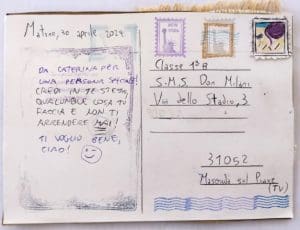 30 aprile 2024
DA CATERINA PER
UNA PERSONA SPECIALE!
CREDI IN TE STESSA,
QUALUNQUE COSA TU
FACCIA E NON TI
ARRENDERE MAI!
TI VOGLIO BENE,
CIAO!
Classe 1ª B
S.M.S Don Milani
Via dello Stadio, 3
31052
Maserada sul Piave
(TV)